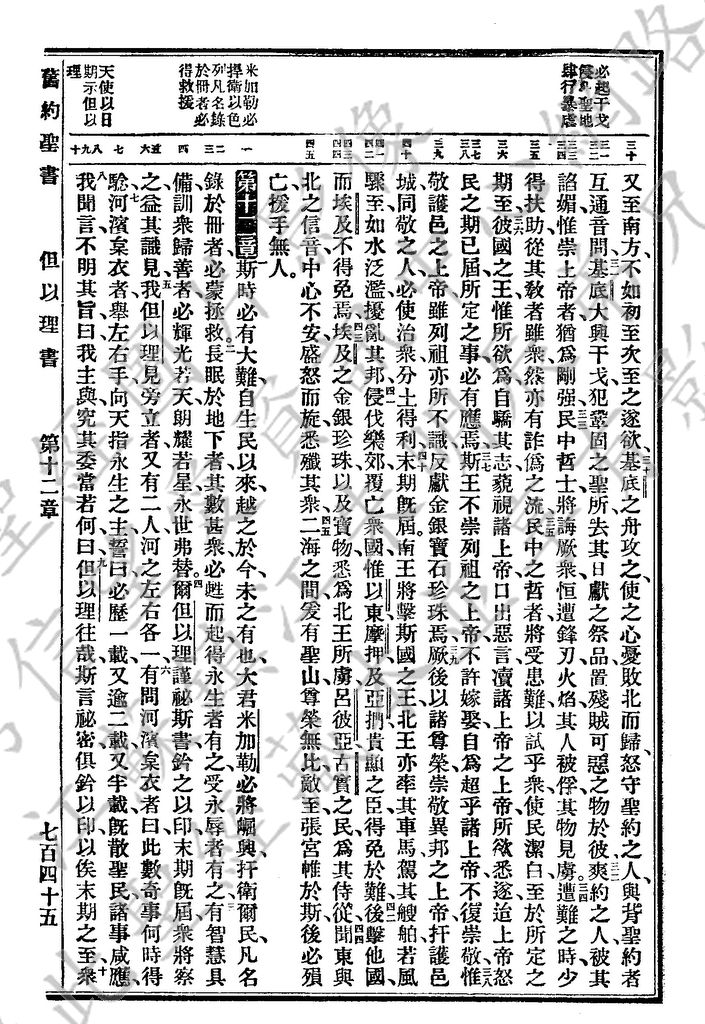 必起干戈
侵與聖地
肆行暴虐
米加勒必
捍衛以色
列凡名錄
於冊者必
得救援
天使以日
期示但以
理
三十
又至南方不如初至次至之遂欲基底之舟攻之使之心憂敗北而歸怒守聖約之人與背聖約者
互通音問基底大興干戈犯鞏固之聖所去其日獻之祭品置殘賊可惡之物於彼爽約之人被其
諂媚惟崇上帝者猶爲剛强民中哲士將誨厥衆恒遭鋒刃火焰其人被俘其物見虜遭難之時少
得扶助從其敎者雖衆然亦有詐僞之流民中之哲者將受患難以試乎衆使民潔白至於所定之
期至彼國之王惟所欲爲自驕其志藐視諸上帝口出惡言凟諸上帝之上帝所欲悉遂迨上帝怒
民之期已屆所定之事必有應焉斯王不崇列祖之上帝不許嫁娶自爲超乎諸上帝不復崇敬惟
敬護邑之上帝雖列祖亦所不識反獻金銀寶石珍珠焉厥後以諸尊榮崇敬異邦之上帝扞護邑
城同敬之人必使治衆分土得利末期旣屆南王將擊斯國之王北王亦率其車馬駕其艘舶若風
驟至如水泛濫擾亂其邦侵伐樂郊覆亡衆國惟以東摩押及亞捫貴顯之臣得免於難後擊他國
而埃及不得免焉埃及之金銀珍珠以及寶物悉爲北王所虜呂彼亞古實之民爲其侍從聞東與
北之信音中心不安盛怒而旋悉殲其衆二海之間爰有聖山尊榮無比敵至張宮帷於斯後必殞
亡援手無人
第十二章斯時必有大難自生民以來越之於今未之有也大君米加勒必將崛興扞衛爾民凡名
錄於冊者必蒙拯救長眠於地下者其數甚衆必甦而起得永生者有之受永辱者有之有智慧具
備訓衆歸善者必輝光若天朗耀若星永世弗替爾但以理謹祕斯書鈐之以印末期旣屆衆將察
之益其識見我但以理見旁立者又有二人河之左右各一有問河濱枲衣者曰此數奇事何時得
騐河濱枲衣者舉左右手向天指永生之主誓曰必歷一載又逾二載又半載旣散聖民諸事咸應
我聞言不明其旨曰我主與究其委當若何曰但以理往哉斯言祕密俱鈐以印以俟末期之至衆
舊約聖書 但以理書 第十二章 七百四十五